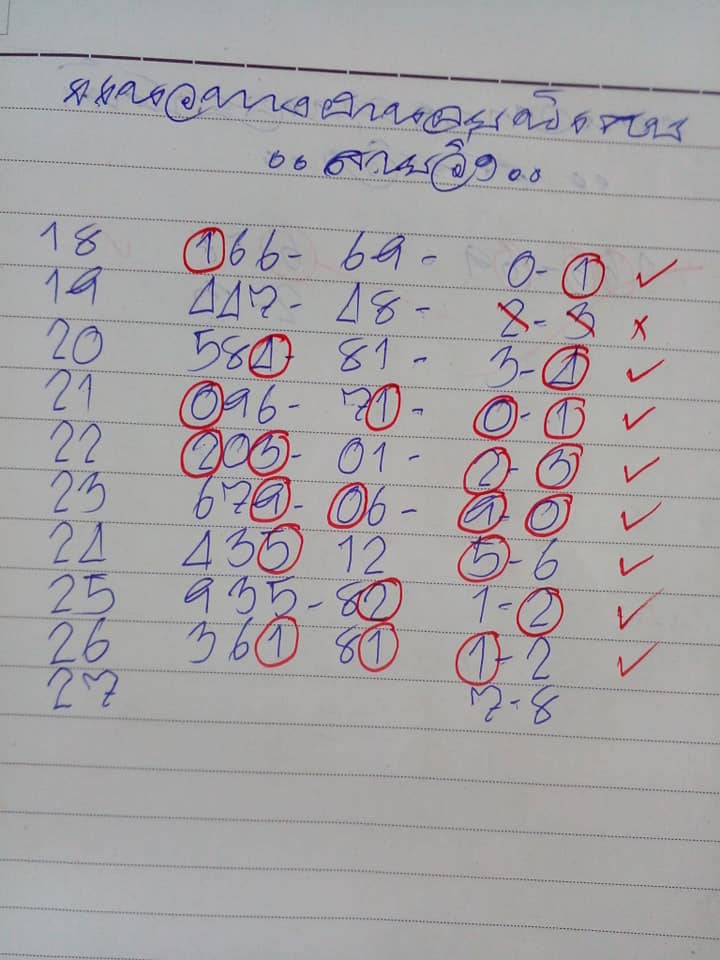 ..สายวิ่ง..
18 166- 69 - 0-1 ✓
19 447- 48 - 2-3 x
20 584- 81 - 3-4 ✓
21 096- 71 - 0-1 ✓
22 203- 01 - 2-3 ✓
23 679- 06 - 9-0 ✓
24 435 12 5-6 ✓
25 935-82 1-2 ✓
26 361 81 1-2 ✓
27 7-8